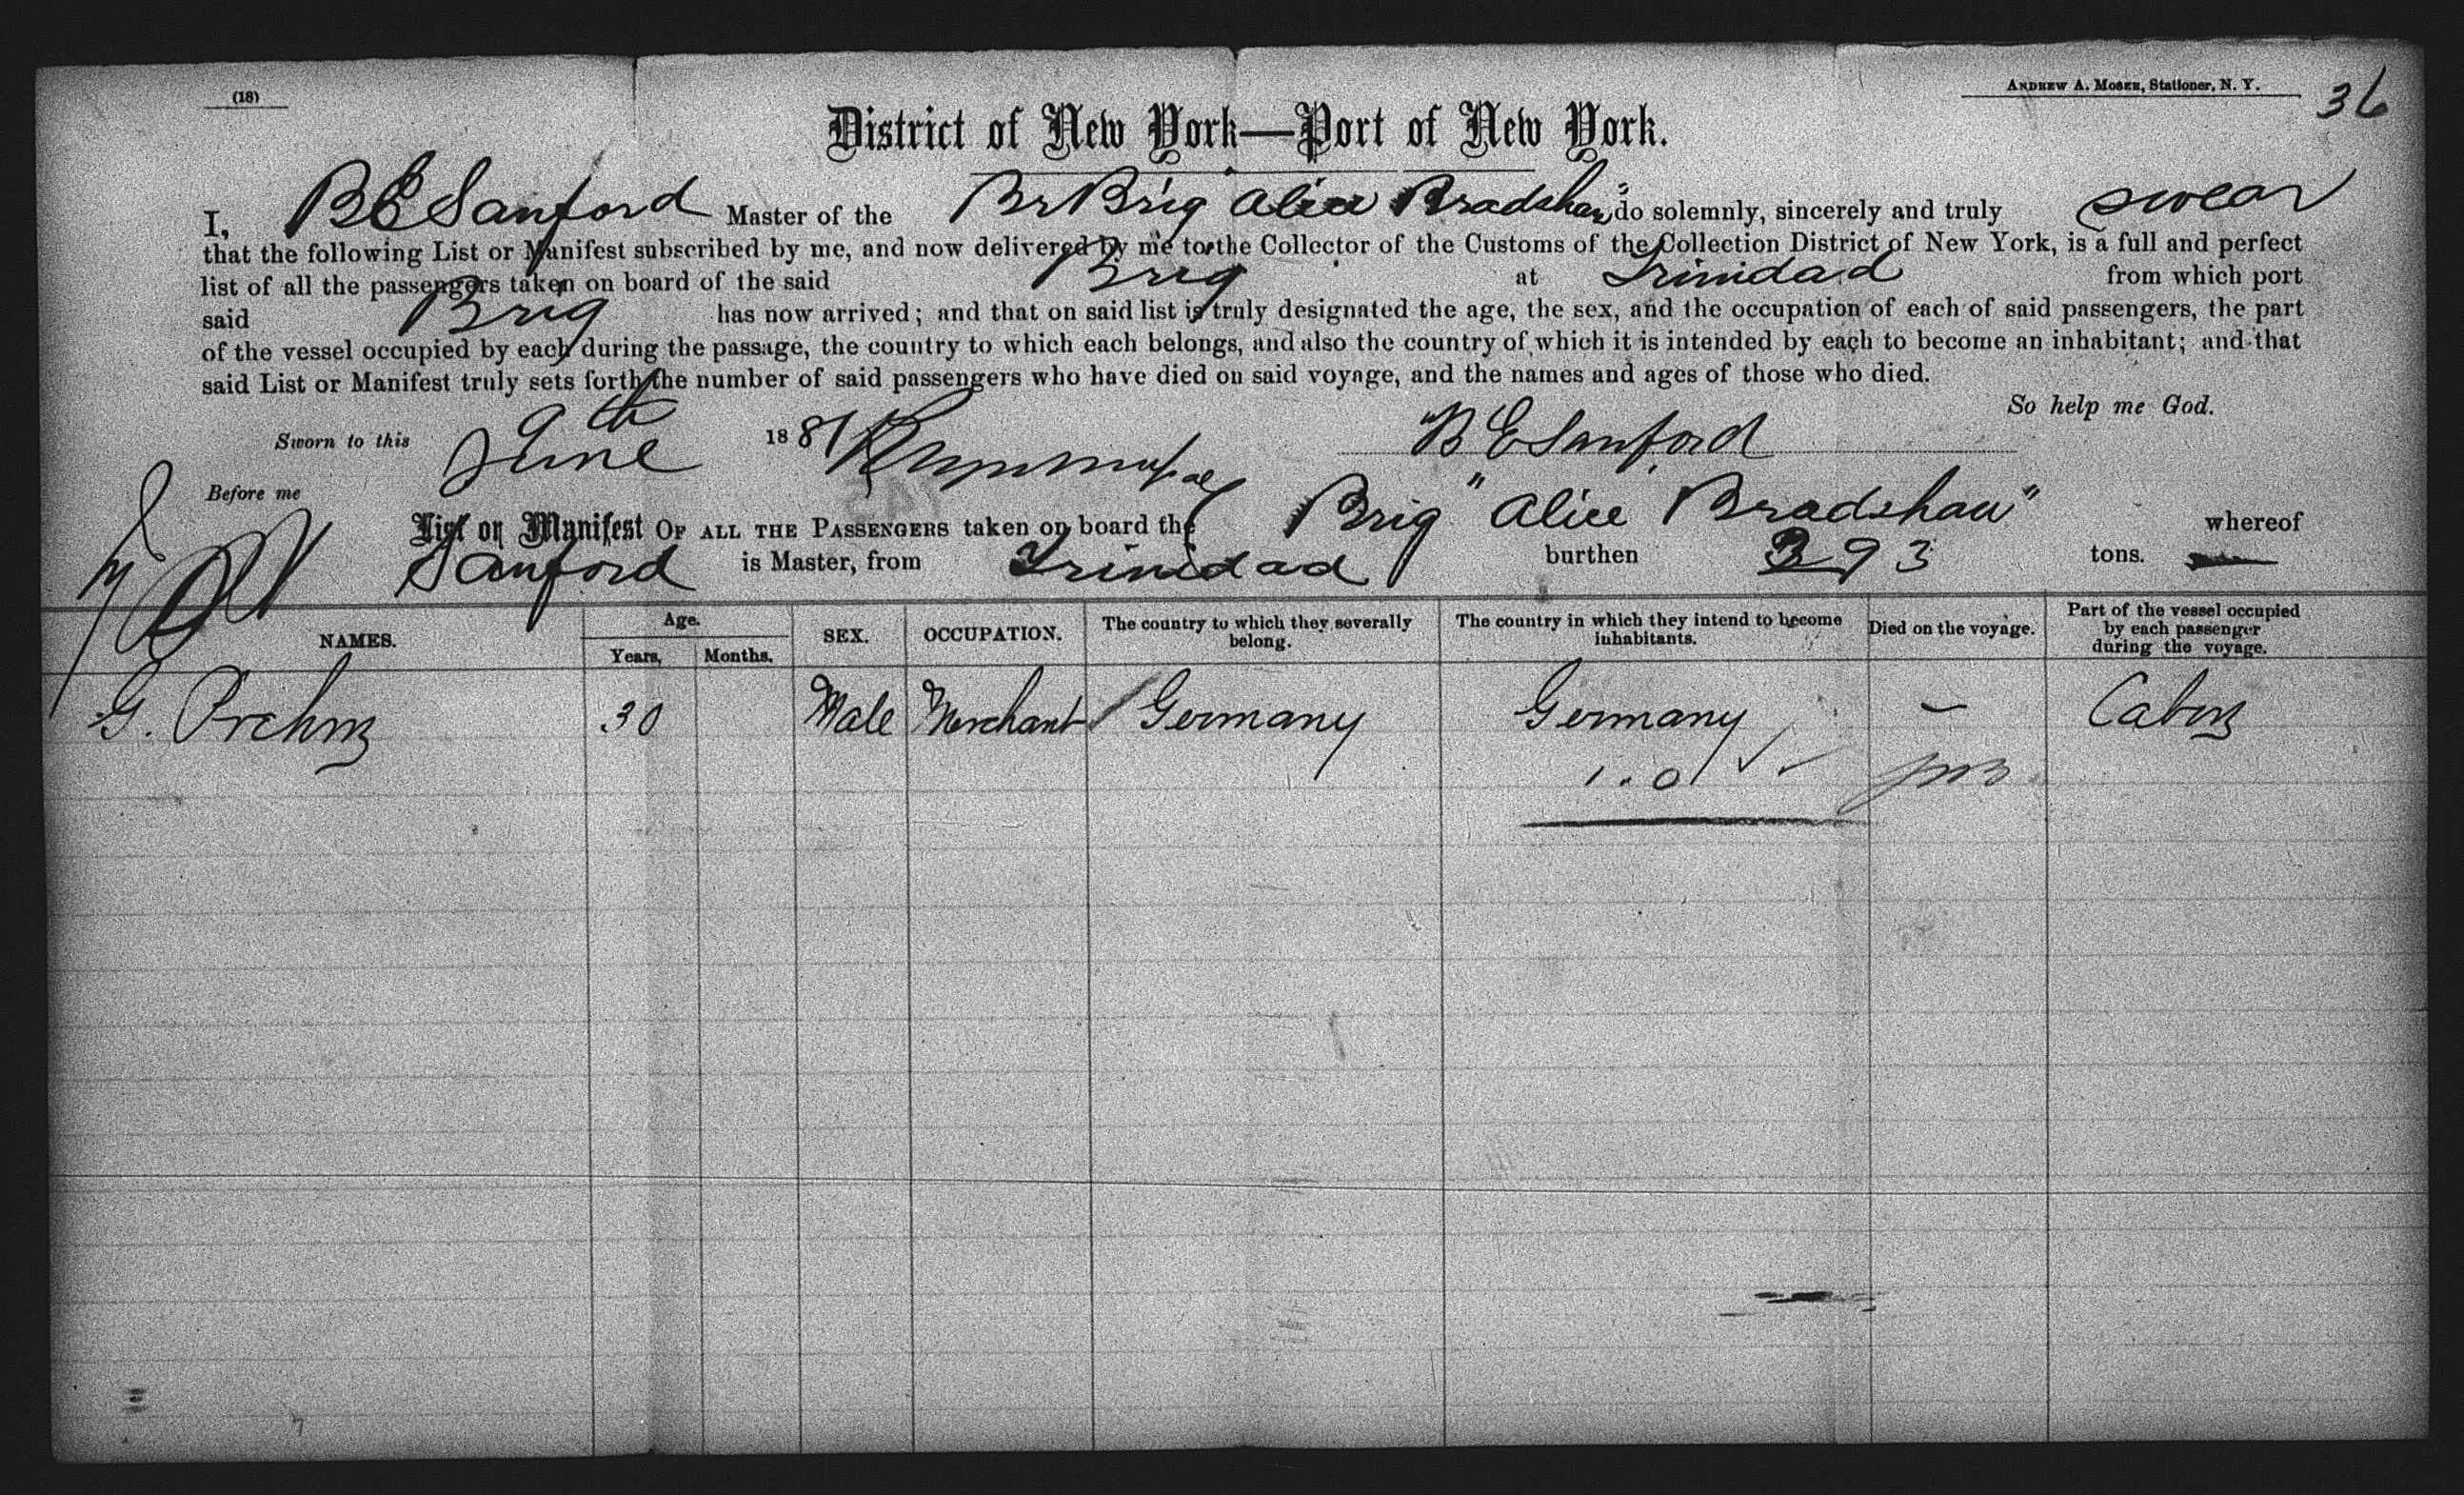 (18)
ANDREW A. MOSER, Stationer, N. Y.
36
District of New York—Port of New York.
I, B E Sanford Master of the Br Brig "Alice Bradshaw" do solemnly, sincerely and truly swear
that the following List or Manifest subscribed by me, and now delivered by me to the Collector of the Customs of the Collection District of New York, is a full and perfect
list of all the passengers taken on board of the said Brig at Trinidad from which port
said Brig has now arrived; and that on said list is truly designated the age, the sex, and the occupation of each of said passengers, the part
of the vessel occupied by each during the passage, the country to which each belongs, and also the country of which it is intended by each to become an inhabitant; and that
said List or Manifest truly sets forth the number of said passengers who have died on said voyage, and the names and ages of those who died.
So help me God.
Sworn to this June 1881 B E Sanford
Before me
List or Manifest OF ALL THE PASSENGERS taken on board the Brig "Alice Bradshaw" whereof
Sanford is Master, from Trinidad burthen 393 tons.
NAMES. Age. Years, Months. SEX. OCCUPATION. The country to which they severally belong. The country in which they intend to become inhabitants. Died on the voyage. Part of the vessel occupied by each passenger during the voyage.
G. 30 Male Merchant Germany Germany — Cabin